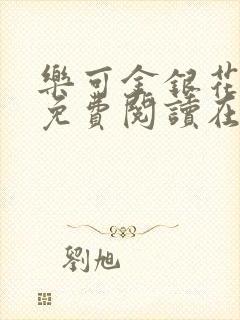 樂可金銀花
免費閱讀在
劉旭